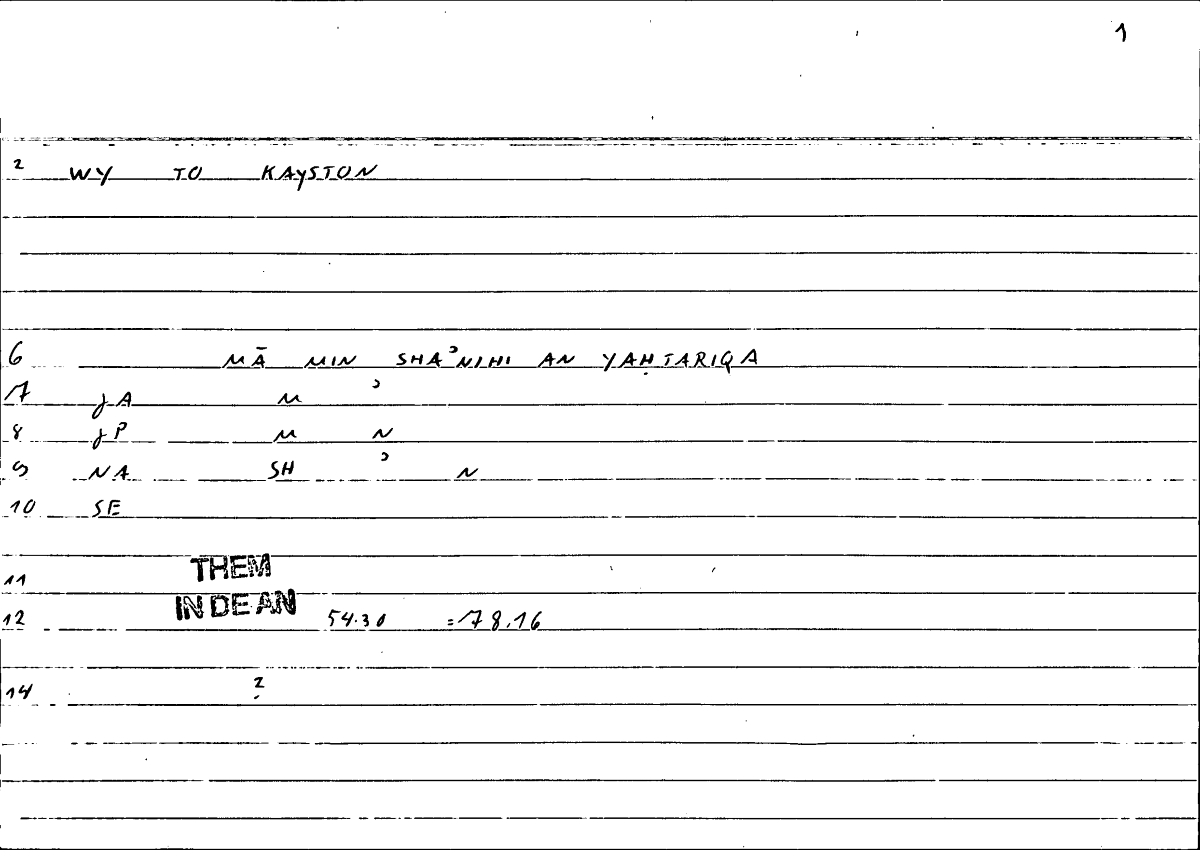 1
2 WY TO KAYSTON
6 MĀ MIN SHAʾNIHI AN YAḤTARIQA
7 JA M ʾ
8 JP M N
9 NA SH ʾ N
10 SE
11 THEM
IN DE AN
12 54.30 =78.16
14 2